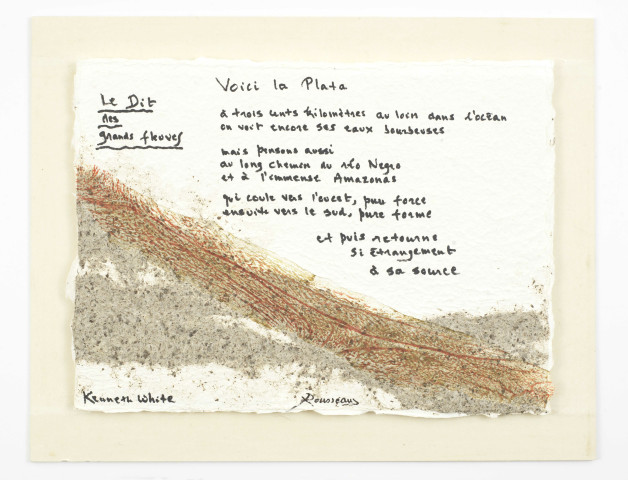 Le Dit
des
grands fleuves
Voici la Plata
à trois cents kilomètres au loin dans l'océan
on voit encore ses eaux bourbeuses
mais pensons aussi
au long chemin du río Negro
et à l'immense Amazonas
qui coule vers l'ouest, pure force
ensuite vers le sud, pure forme
et puis retourne
si étrangement
à sa source
Kenneth White
Rousseau